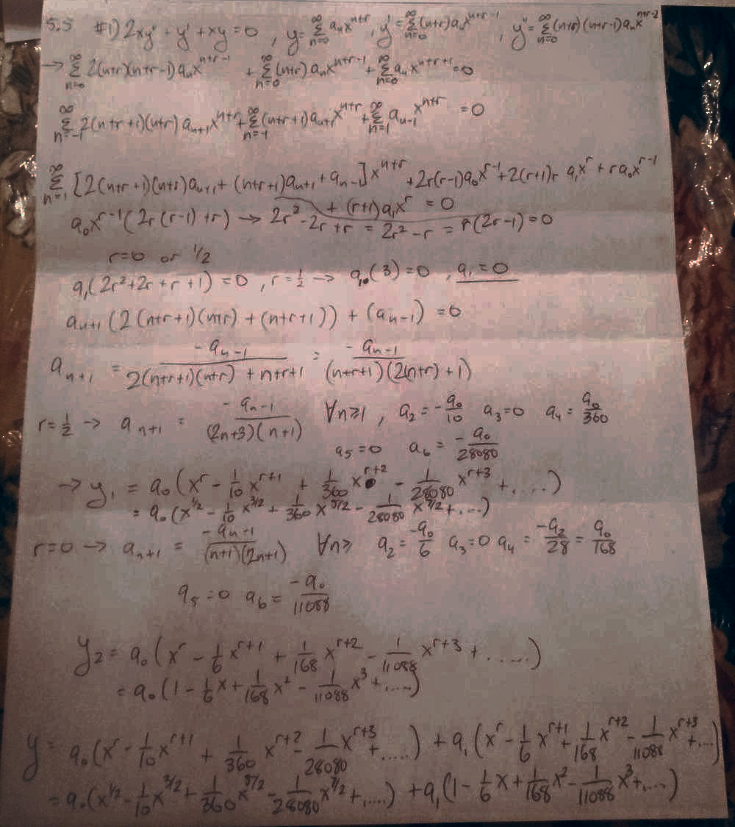 5.5 #1) 2xy" + y' + xy = 0 , y = ∑_{n=0}^∞ a_n x^{n+r} , y' = ∑_{n=0}^∞ (n+r) a_n x^{n+r-1} , y" = ∑_{n=0}^∞ (n+r)(n+r-1) a_n x^{n+r-2}
→ ∑_{n=0}^∞ 2(n+r)(n+r-1) a_n x^{n+r-1} + ∑_{n=0}^∞ (n+r) a_n x^{n+r-1} + ∑_{n=0}^∞ a_n x^{n+r+1} = 0
∑_{n=-1}^∞ 2(n+r+1)(n+r) a_{n+1} x^{n+r} + ∑_{n=-1}^∞ (n+r+1) a_{n+1} x^{n+r} + ∑_{n=1}^∞ a_{n-1} x^{n+r} = 0
∑_{n=1}^∞ [2(n+r+1)(n+r) a_{n+1} + (n+r+1) a_{n+1} + a_{n-1}] x^{n+r} + 2r(r-1) a_0 x^{r-1} + 2(r+1)r a_1 x^r + r a_0 x^{r-1}
+ (r+1) a_1 x^r = 0
a_0 x^{r-1} (2r(r-1) + r) → 2r² - 2r + r = 2r² - r = r(2r-1) = 0
r = 0 or 1/2
a_1 (2r² + 2r + r + 1) = 0 , r = 1/2 → a_1 (3) = 0 , a_1 = 0
a_{n+1} (2(n+r+1)(n+r) + (n+r+1)) + (a_{n-1}) = 0
a_{n+1} = -a_{n-1} / (2(n+r+1)(n+r) + n+r+1) = -a_{n-1} / ((n+r+1)(2(n+r)+1))
r = 1/2 → a_{n+1} = -a_{n-1} / ((2n+3)(n+1)) ∀n≥1 , a_2 = -a_0/10 a_3 = 0 a_4 = a_0/360
a_5 = 0 a_6 = -a_0/28080
→ y_1 = a_0 (x^r - 1/10 x^{r+1} + 1/360 x^{r+2} - 1/28080 x^{r+3} + ,....)
= a_0 (x^{1/2} - 1/10 x^{3/2} + 1/360 x^{5/2} - 1/28080 x^{7/2} + ,....)
r = 0 → a_{n+1} = -a_{n-1} / ((n+1)(2n+1)) ∀n≥ a_2 = -a_0/6 a_3 = 0 a_4 = -a_2/28 = a_0/168
a_5 = 0 a_6 = -a_0/11088
y_2 = a_0 (x^r - 1/6 x^{r+1} + 1/168 x^{r+2} - 1/11088 x^{r+3} + .....)
= a_0 (1 - 1/6 x + 1/168 x² - 1/11088 x³ + ,....)
y = a_0 (x^r - 1/10 x^{r+1} + 1/360 x^{r+2} - 1/28080 x^{r+3} + ,....) + a_1 (x^r - 1/6 x^{r+1} + 1/168 x^{r+2} - 1/11088 x^{r+3} + ,..)
= a_0 (x^{1/2} - 1/10 x^{3/2} + 1/360 x^{5/2} - 1/28080 x^{7/2} + ,....) + a_1 (1 - 1/6 x + 1/168 x² - 1/11088 x³ + ,....)